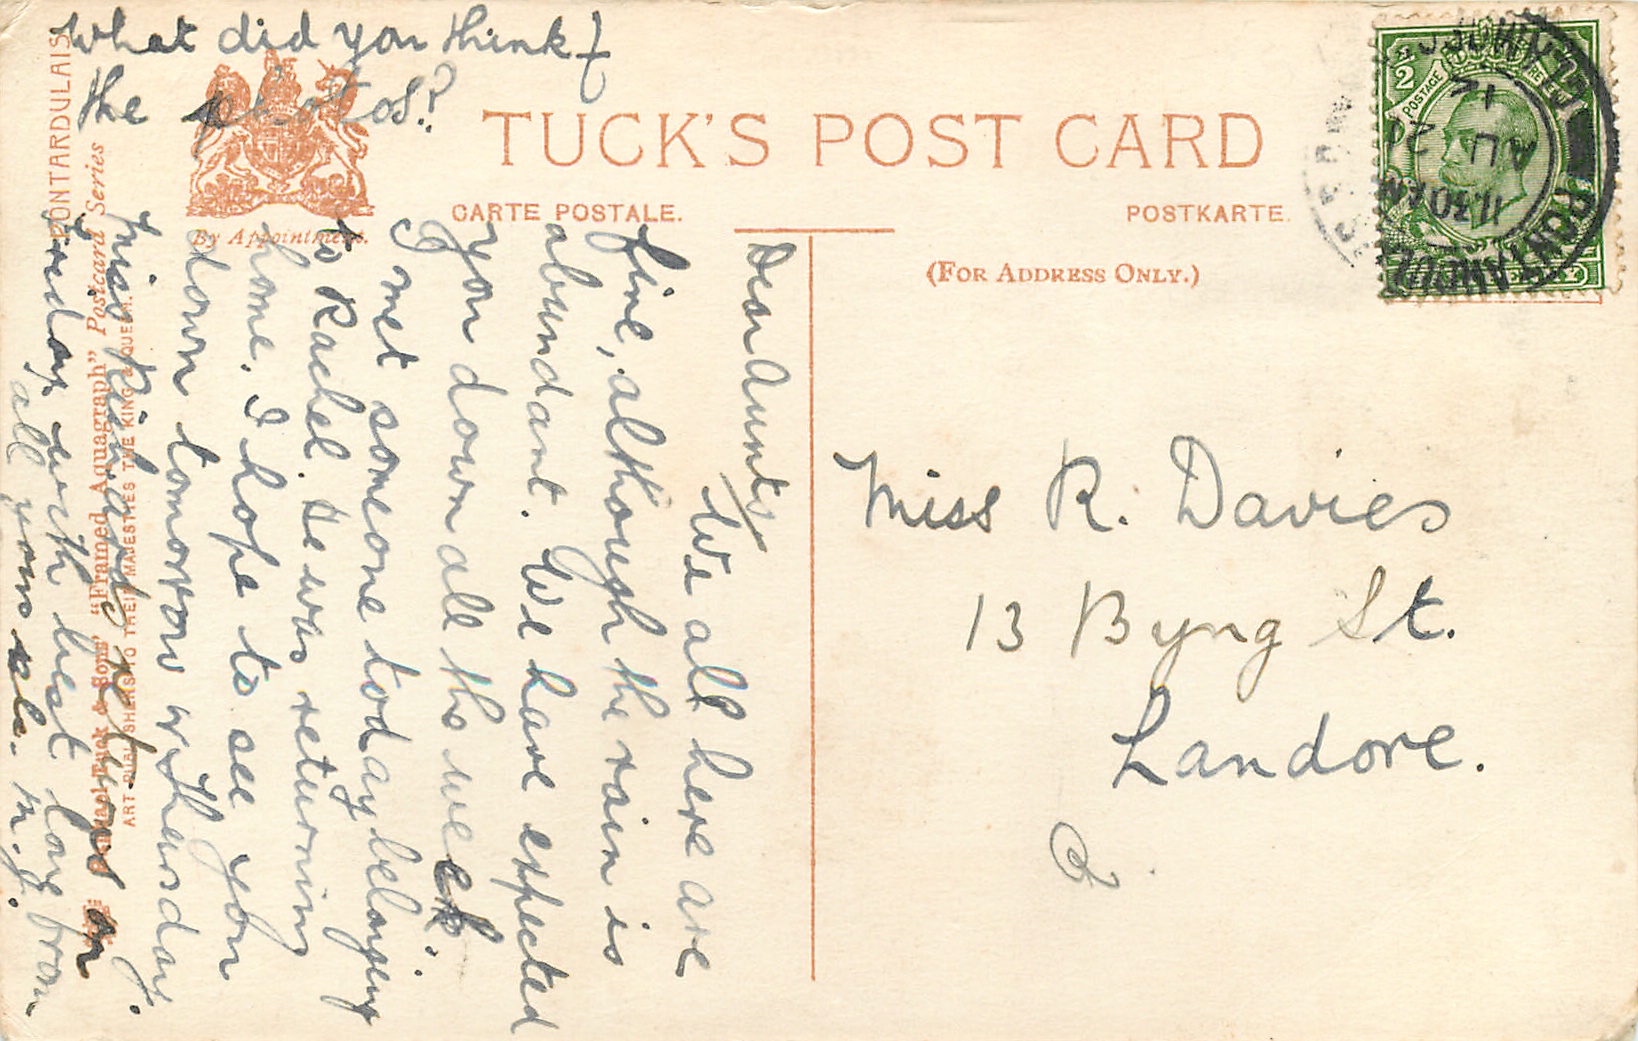 What did you think of
the photos?
TUCK'S POST CARD
CARTE POSTALE.
POSTKARTE.
(FOR ADDRESS ONLY.)
By Appointment.
PONTARDULAIS
Raphael Tuck & Sons' "Framed Aquagraph" Postcard Series
ART PUBLISHERS TO THEIR MAJESTIES THE KING & QUEEN.
Dear Aunty/
We all here are
fine, although the rain is
abundant. We have expected
you down all the week.
I met someone today belonging
to Rachel. He was returning
home. I hope to see you
down tomorrow or Thursday.
Miss Richards returns on
Friday with best love from
all yours etc. M.J.
Miss R. Davies
13 Byng St.
Landore.
1/2
POSTAGE
REVENUE
HALFPENNY
11.30 AM
AU 20
12
PONTARDULAIS